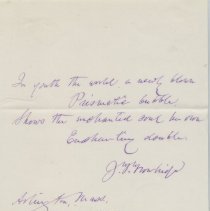 In youth the world, a newly blown
Prismatic bubble,
Shows the enchanted soul his own
Enchanting double.
J. T. Trowbridge
Arlington, Mass.